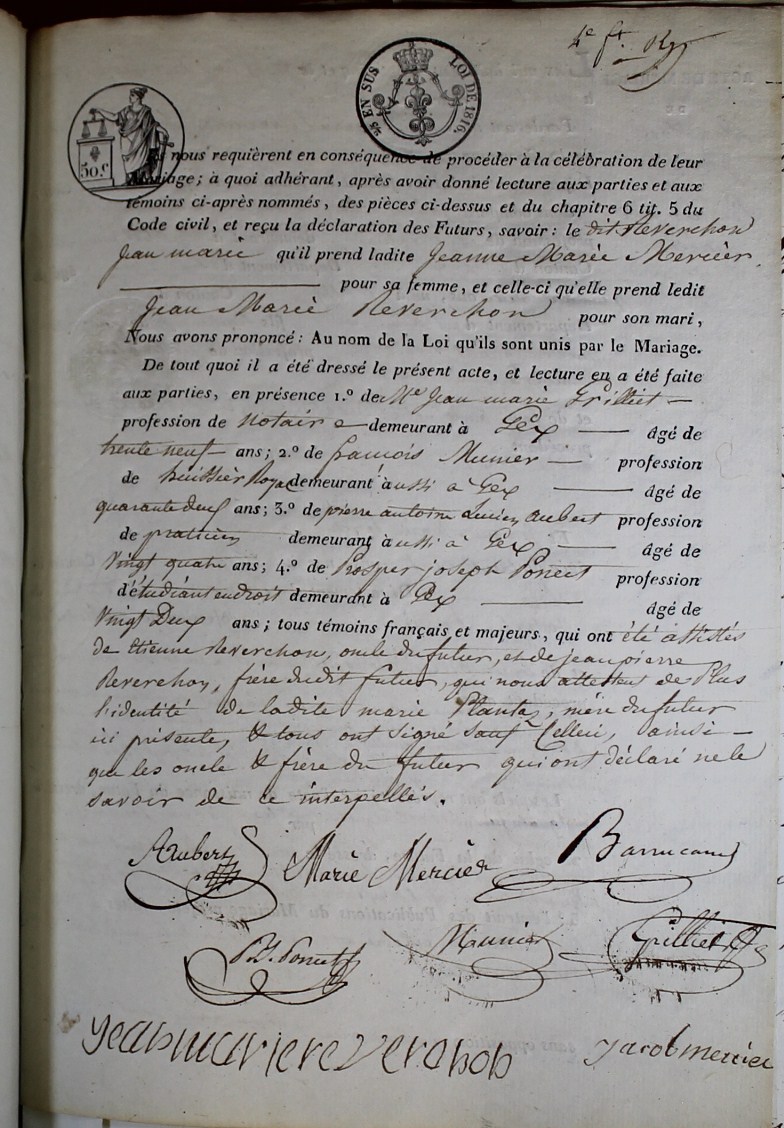 4e ft.
EN SUS LOI DE 1816.
50.c
nous requièrent en conséquence de procéder à la célébration de leur
Mariage ; à quoi adhérant, après avoir donné lecture aux parties et aux
témoins ci-après nommés, des pièces ci-dessus et du chapitre 6 tit. 5 du
Code civil, et reçu la déclaration des Futurs, savoir : le dit Reverchon
Jean marie qu'il prend ladite Jeanne Marie Mercier
pour sa femme, et celle-ci qu'elle prend ledit
Jean Marie Reverchon pour son mari,
Nous avons prononcé : Au nom de la Loi qu'ils sont unis par le Mariage.
De tout quoi il a été dressé le présent acte, et lecture en a été faite
aux parties, en présence 1.º de Me Jean marie Grilliet
profession de notaire demeurant à Gex âgé de
trente neuf ans ; 2.º de françois Munier profession
de huissier Royal demeurant aussi à Gex âgé de
quarante deux ans ; 3.º de pierre antoine Lucien aubert profession
de praticien demeurant aussi à Gex âgé de
Vingt quatre ans ; 4.º de Prosper joseph Poncet profession
d'étudiant en droit demeurant à Gex âgé de
Vingt Deux ans ; tous témoins français et majeurs, qui ont été assistés
de Etienne Reverchon, oncle du futur, et de jean pierre
Reverchon, frère dudit futur, qui nous attestent de Plus
l'identité de ladite marie Plantaz, mère du futur
ici présente, & tous ont signé sauf Celleci, ainsi
que les oncle & frère du futur qui ont déclaré ne le
savoir de ce interpellés.
Aubert Marie Mercier Barrucand
P.J. Poncet Munier Grilliet
jeanmariereverchon jacob mercier